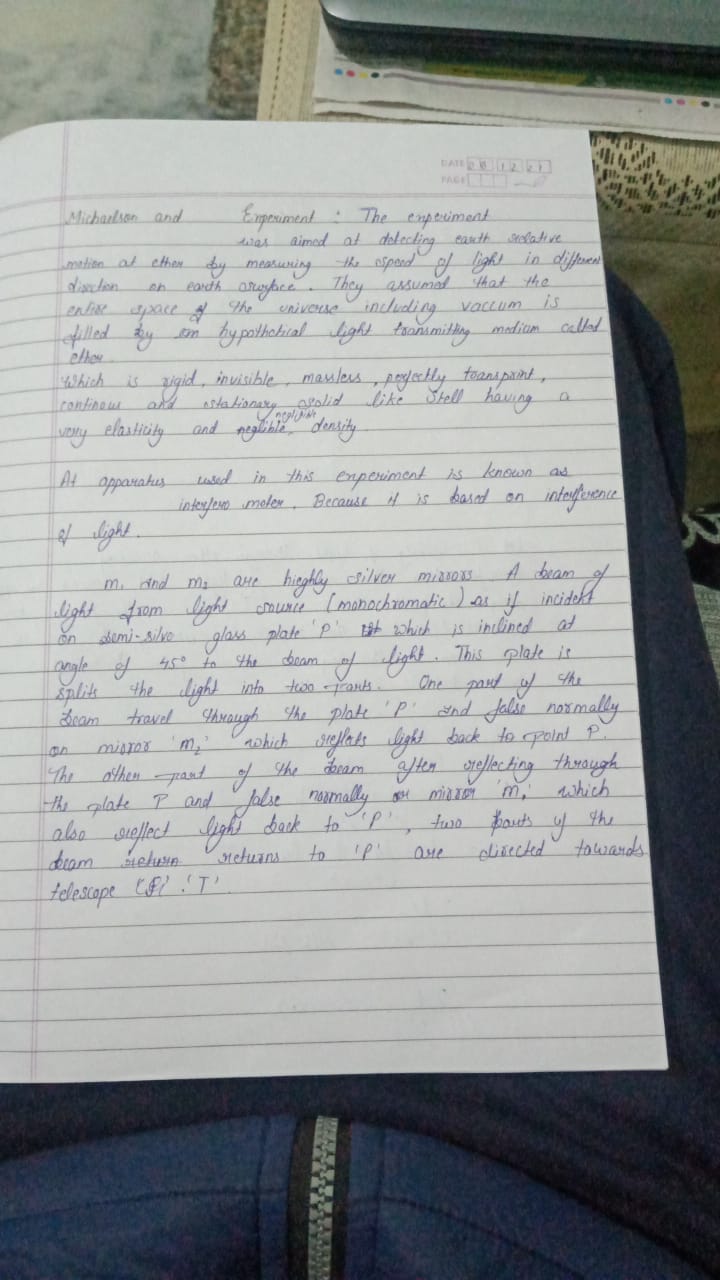 DATE 08 12 21
PAGE
Michaelson and Experiment : The experiment
was aimed at detecting earth relative
motion at ether by measuring the speed of light in different
direction on earth surface. They assumed that the
entire space of the universe including vaccum is
filled by an hypothetical light transmitting medium called
ether.
Which is rigid, invisible, massless, perfectly transprint,
continous and stationary solid like Stell having a
negligible
very elasticity and neglible density.
At apparatus used in this experiment is known as
interfero meter. Because it is based on interference
of light.
m₁ and m₂ are hieghly silver mirrors A beam of
light from light source (monochromatic) as if incident
on semi-silve glass plate 'P' which is inclined at
angle of 45° to the beam of light. This plate is
splits the light into two parts. One part of the
beam travel through the plate 'P' and false normally
on mirror 'm₂' which reflects light back to point P.
The other part of the beam after reflecting through
the plate P and false normally or mirror 'm₁' which
also reflect light back to 'P', two parts of the
beam return returns to 'P' are directed towards
telescope 'T'.